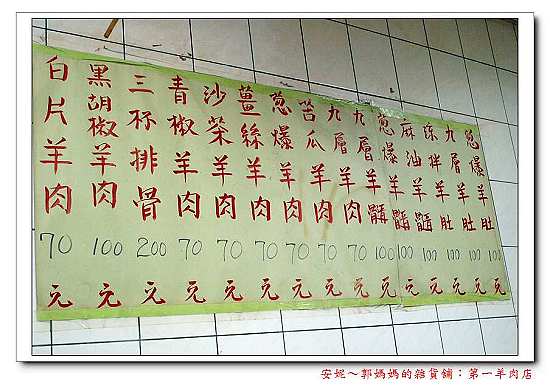 葱爆羊肚100元
九層羊肚100元
涼拌羊肚100元
麻油羊髓100元
葱爆羊髓100元
九層羊髓100元
九層羊肉70元
苦瓜羊肉70元
葱爆羊肉70元
薑絲羊肉70元
沙茶羊肉70元
青椒羊肉70元
三杯排骨200元
黑胡椒羊肉100元
白片羊肉70元
安妮～郭媽媽的雜貨鋪：第一羊肉店